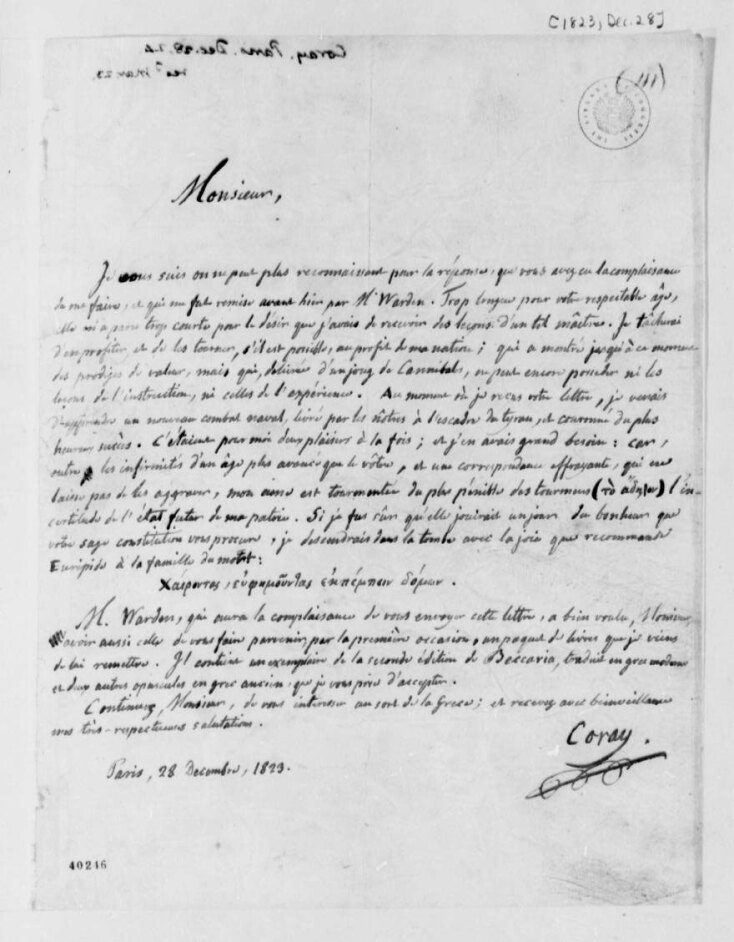 [1823, Dec. 28]
Coray. Paris. Dec. 28. 23
recd Mar. 23.
THE LIBRARY OF CONGRESS
Monsieur,
Je vous suis on ne peut plus reconnaissant pour la réponse, que vous avez eu la complaisance
de me faire, et qui me fut remise avant hier par Mr Warden. Trop longue pour votre respectable âge,
elle m'a paru trop courte pour le désir que j'avais de recevoir des leçons d'un tel maître. Je tâcherai
d'en profiter, et de les tourner, s'il est possible, au profit de ma nation; qui a montré jusqu'à ce moment
des prodiges de valeur, mais qui, délivrée d'un joug de Cannibals, ne peut encore posséder ni les
leçons de l'instruction, ni celles de l'expérience. Au moment où je reçus votre lettre, je venais
d'apprendre un nouveau combat naval, livré par les nôtres à l'escadre du tyran, et couronné du plus
heureux succès. C'étaient pour moi deux plaisirs à la fois; et j'en avais grand besoin: car,
outre les infirmités d'un âge plus avancé que le vôtre, et une correspondance effrayante, qui ne
laisse pas de les aggraver, mon ame est tourmentée du plus pénible des tourmens (τὸ ἄδηλον) l'in-
certitude de l'état futur de ma patrie. Si je fus sûr qu'elle jouirait un jour du bonheur que
votre sage constitution vous procure, je descendrais dans la tombe avec la joie que recommande
Euripide à la famille du mort:
Χαίροντας, εὐφημοῦντας ἐκπέμπειν δόμων.
M. Warden, qui aura la complaisance de vous envoyer cette lettre, a bien voulu, Monsieur,
avoir aussi celle de vous faire parvenir, par la première occasion, un paquet de livres que je viens
de lui remettre. Il contient un exemplaire de la seconde édition de Beccaria, traduit en grec moderne
et deux autres opuscules en grec ancien, que je vous prie d'accepter.
Continuez, Monsieur, de vous intéresser au sort de la Grèce; et recevez avec bienveillance
mes très-respectueuses salutations.
Coray.
Paris, 28 Decembre, 1823.
40246